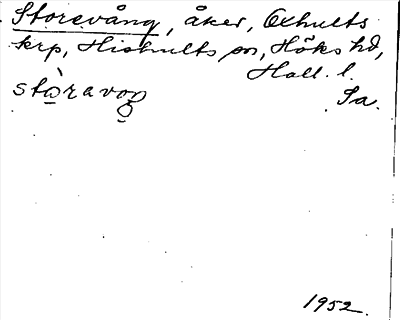 Storevång, åker, Oxhults
krp, Hishults sn, Höks hd,
Hall. l.
stòravoŋ
Ia.
1952.